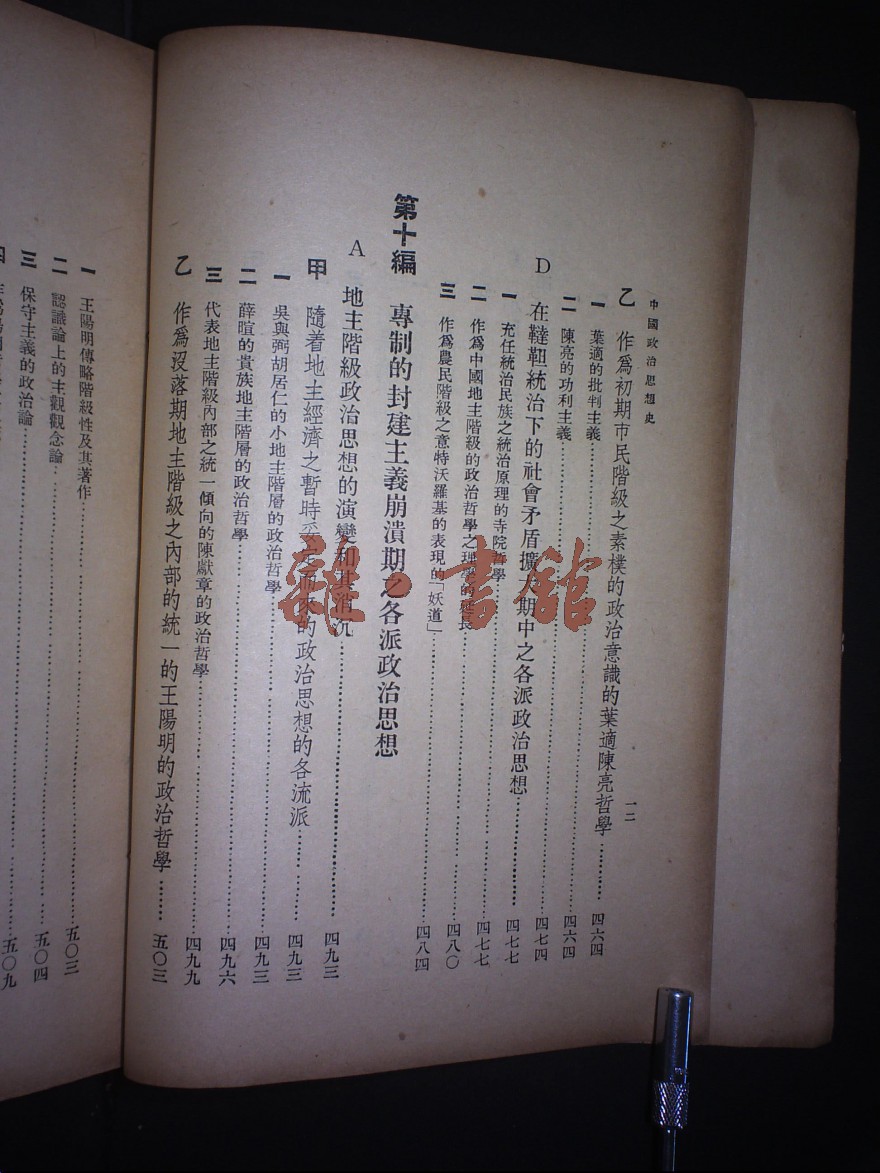 中國政治思想史
一二
乙 作爲初期市民階級之素樸的政治意識的葉適陳亮哲學………四六四
一 葉適的批判主義………四六四
二 陳亮的功利主義………四七四
D 在韃靼統治下的社會矛盾擴 期中之各派政治思想………四七七
一 充任統治民族之統治原理的寺院哲學………四七七
二 作爲中國地主階級的政治哲學之理學的延長………四八〇
三 作爲農民階級之意特沃羅基的表現的「妖道」………四八四
第十編 專制的封建主義崩潰期之各派政治思想
A 地主階級政治思想的演變和其消沉………四九三
甲 隨着地主經濟之暫時 定而來的政治思想的各流派………四九三
一 吳與弼胡居仁的小地主階層的政治哲學………四九三
二 薛暄的貴族地主階層的政治哲學………四九六
三 代表地主階級內部之統一傾向的陳獻章的政治哲學………四九九
乙 作爲沒落期地主階級之內部的統一的王陽明的政治哲學………五〇三
一 王陽明傳略階級性及其著作………五〇三
二 認識論上的主觀觀念論………五〇四
三 保守主義的政治論………五〇九
四
雜·書館